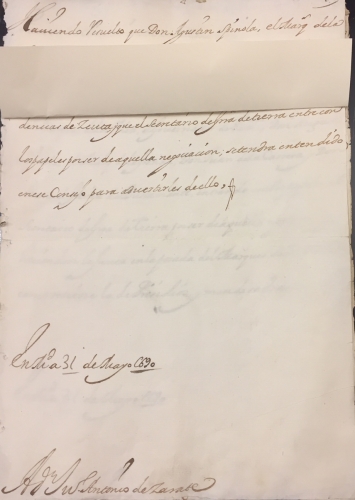 Haviendo resuelto que Don Agustin Spinola, el Marq.s de la
dencias de Zeuta, y que el secretario de gra de tierra entre con
los papeles por ser de aquella negociacion; se tendra entendido
en ese Consejo para advertirles de ello,
En M.d a 31 de Mayo 1690
A D.n Ju.o Antonio de Zarate